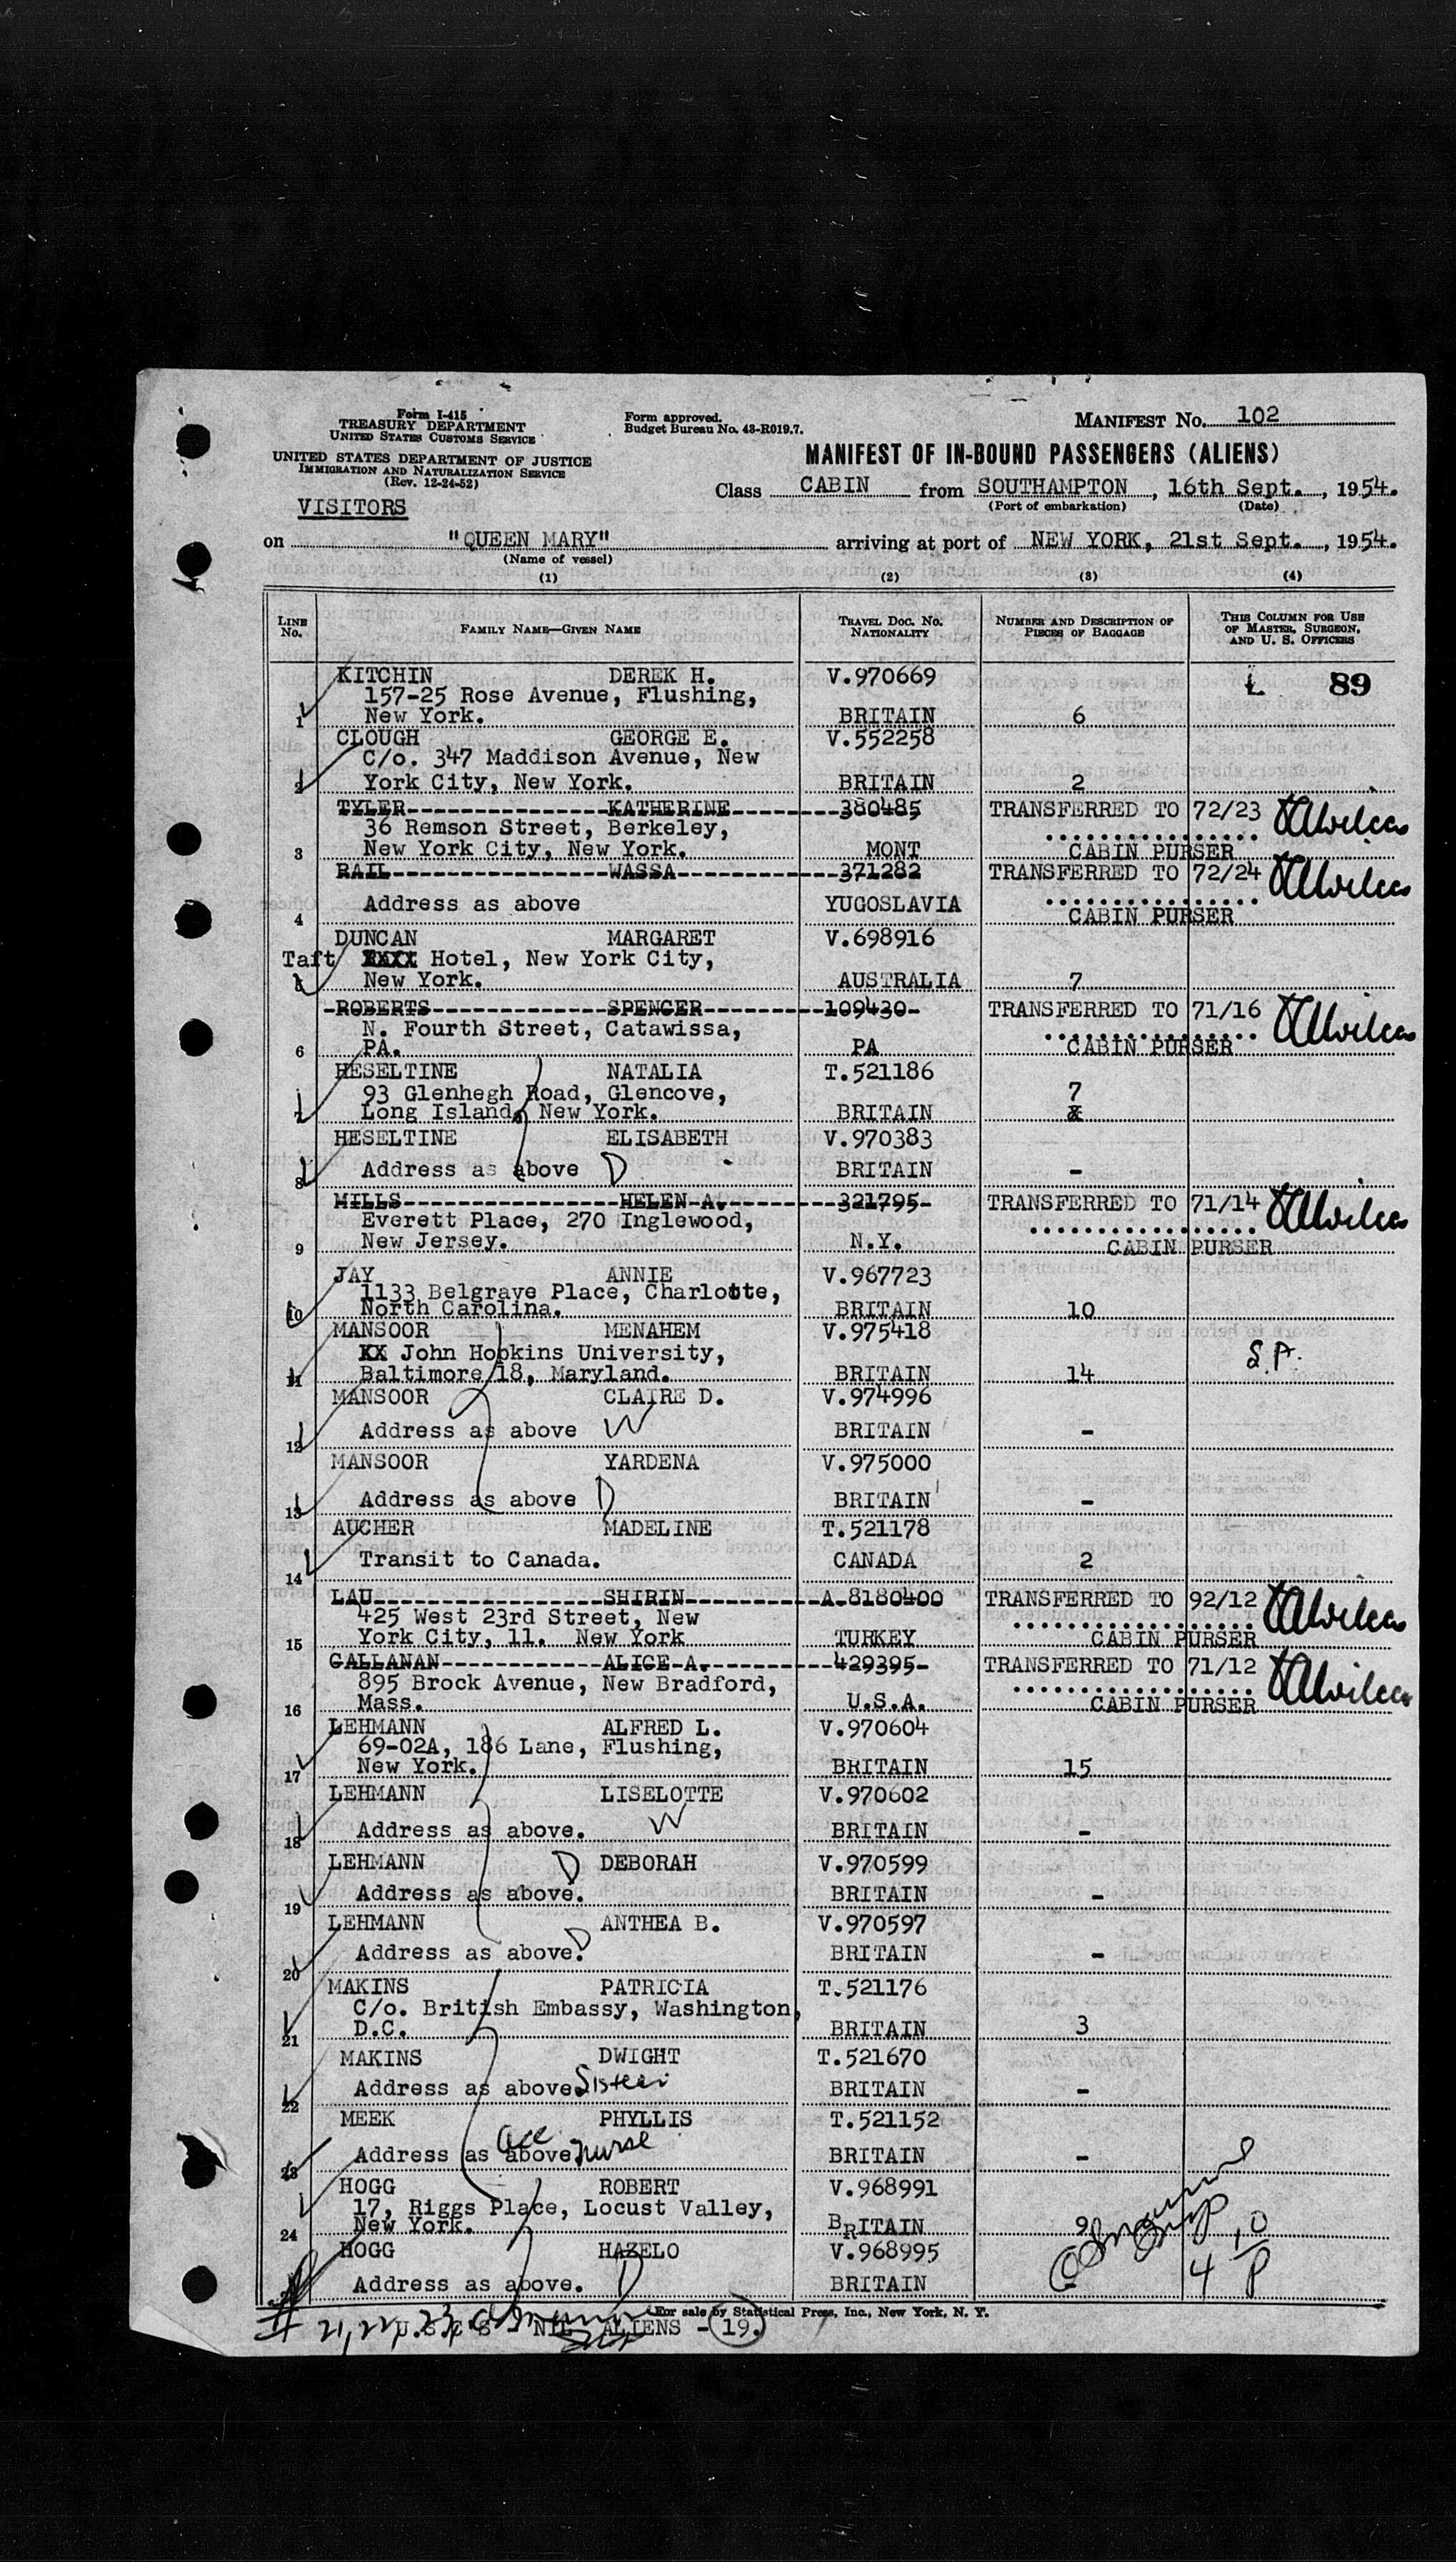 Form I-415
TREASURY DEPARTMENT
UNITED STATES CUSTOMS SERVICE
UNITED STATES DEPARTMENT OF JUSTICE
IMMIGRATION AND NATURALIZATION SERVICE
(Rev. 12-24-52)
VISITORS
Form approved.
Budget Bureau No. 43-R019.7.
MANIFEST NO. 102
MANIFEST OF IN-BOUND PASSENGERS (ALIENS)
Class CABIN from SOUTHAMPTON, 16th Sept., 1954.
(Port of embarkation) (Date)
on "QUEEN MARY" arriving at port of NEW YORK, 21st Sept., 1954.
(Name of vessel)
(1) (2) (3) (4)
LINE NO. FAMILY NAME—GIVEN NAME TRAVEL DOC. NO. NATIONALITY NUMBER AND DESCRIPTION OF PIECES OF BAGGAGE THIS COLUMN FOR USE OF MASTER, SURGEON, AND U. S. OFFICERS
KITCHIN DEREK H. V.970669 L 89
157-25 Rose Avenue, Flushing,
1 New York. BRITAIN 6
CLOUGH GEORGE E. V.552258
C/o. 347 Maddison Avenue, New
2 York City, New York. BRITAIN 2
TYLER KATHERINE 380485 TRANSFERRED TO 72/23
36 Remson Street, Berkeley,
3 New York City, New York. MONT CABIN PURSER
RAIL WASSA 371282 TRANSFERRED TO 72/24
Address as above YUGOSLAVIA
4 CABIN PURSER
DUNCAN MARGARET V.698916
Taft XXXX Hotel, New York City,
5 New York. AUSTRALIA 7
ROBERTS SPENCER 109430 TRANSFERRED TO 71/16
N. Fourth Street, Catawissa,
6 PA. PA CABIN PURSER
HESELTINE NATALIA T.521186
93 Glenhegh Road, Glencove, 7
7 Long Island, New York. BRITAIN
HESELTINE ELISABETH V.970383
8 Address as above D BRITAIN -
MILLS HELEN A. 321795 TRANSFERRED TO 71/14
Everett Place, 270 Inglewood,
9 New Jersey. N.Y. CABIN PURSER
JAY ANNIE V.967723
1133 Belgrave Place, Charlotte,
10 North Carolina. BRITAIN 10
MANSOOR MENAHEM V.975418
XX John Hopkins University, S.P.
11 Baltimore 18, Maryland. BRITAIN 14
MANSOOR CLAIRE D. V.974996
12 Address as above W BRITAIN -
MANSOOR YARDENA V.975000
13 Address as above D BRITAIN -
AUCHER MADELINE T.521178
14 Transit to Canada. CANADA 2
LAU SHIRIN A.8180400 TRANSFERRED TO 92/12
425 West 23rd Street, New
15 York City, 11. New York TURKEY CABIN PURSER
GALLANAN ALICE A. 429395 TRANSFERRED TO 71/12
895 Brock Avenue, New Bradford,
16 Mass. U.S.A. CABIN PURSER
LEHMANN ALFRED L. V.970604
69-02A, 186 Lane, Flushing,
17 New York. BRITAIN 15
LEHMANN LISELOTTE V.970602
18 Address as above. W BRITAIN -
LEHMANN D DEBORAH V.970599
19 Address as above. BRITAIN -
LEHMANN ANTHEA B. V.970597
20 Address as above. D BRITAIN -
MAKINS PATRICIA T.521176
C/o. British Embassy, Washington,
21 D.C. BRITAIN 3
MAKINS DWIGHT T.521670
22 Address as above. Sister BRITAIN -
MEEK PHYLLIS T.521152
23 Address as above. acc nurse BRITAIN -
HOGG ROBERT V.968991
17, Riggs Place, Locust Valley,
24 New York. BRITAIN 9
HOGG HAZELO V.968995
Address as above. D BRITAIN
For sale by Statistical Press, Inc., New York, N. Y.
NIL ALIENS - 19.